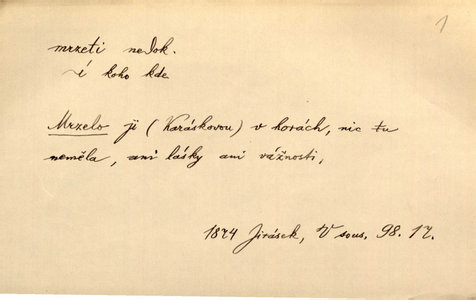 1
mrzeti nedok.
~í koho kde
Mrzelo ji (Karáskovou) v horách, nic tu
neměla, ani lásky ani vážnosti,
1874 Jirásek, V sous. 98. 17.